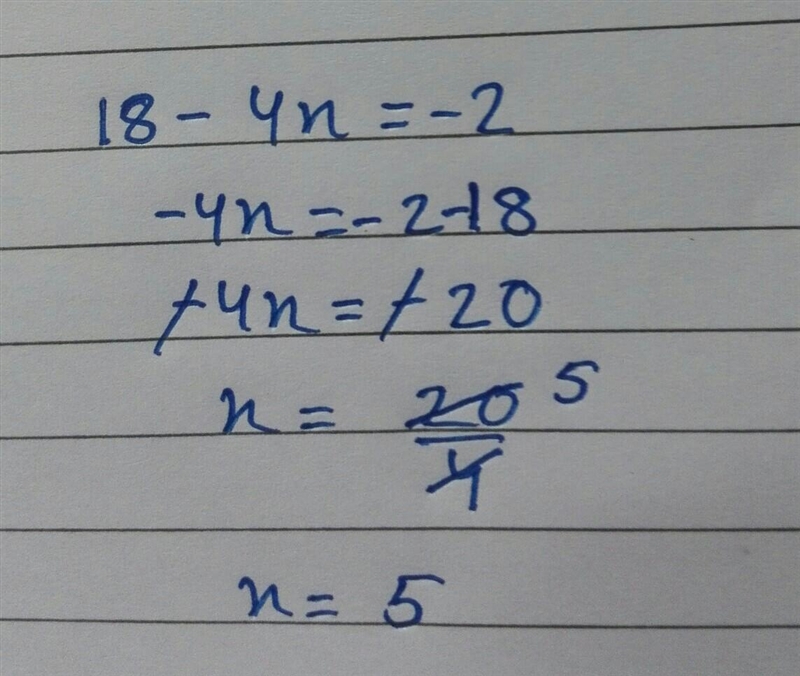 18 - 4n = -2
-4n = -2-18
-4n = -20
n = 20/4 5
n = 5